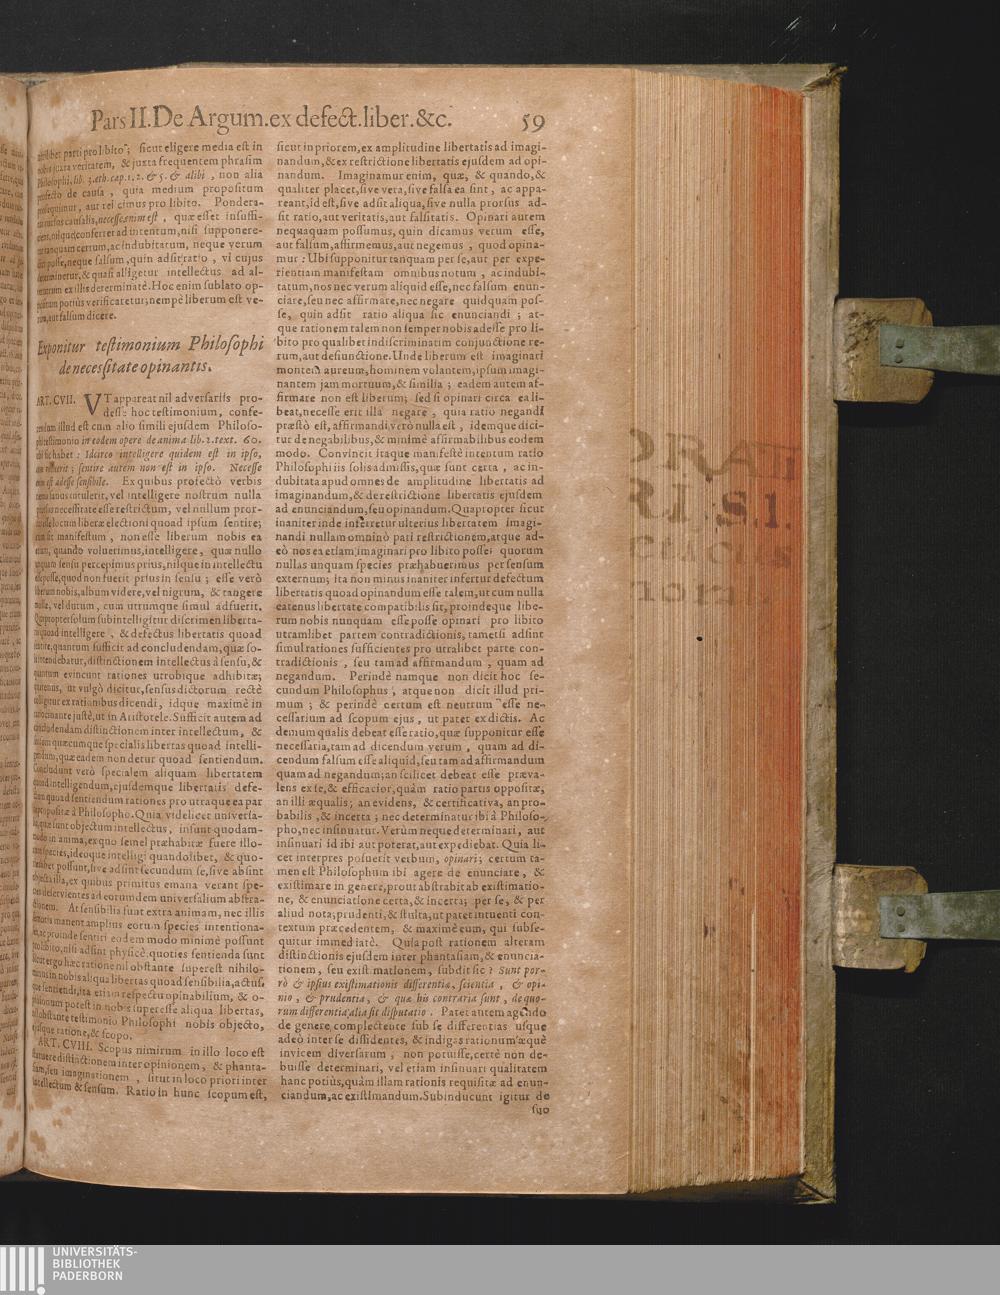 Pars II. De Argum. ex defect. liber. &c. 59
pro libitoˉ; sicut eligere media est in
veritatem, & juxta frequentem phrasim
Philosophi. lib. 3. æth. cap. 1. 2. & 5. & alibi, non alia
de causa, quia medium propositum
aut rei cimus pro libito. Pondera-
causalis, necesse enim est, quæ esset insuffi-
conferret ad intentum, nisi supponere-
tanquam certum, ac indubitatum, neque verum
posse, neque falsum, quin adsit ratio, vi cujus
& quasi alligetur intellectus ad al-
ex illis determinatè. Hoc enim sublato op-
potiùs verificaretur; nempè liberum est ve-
aut falsum dicere.
Exponitur testimonium Philosophi
de necessitate opinantis.
ART. CVII. VT appareat nil adversariis pro-
desse hoc testimonium, confe-
illud est cum alio simili ejusdem Philoso-
testimonio in eodem opere de anima lib. 2. text. 60.
sic habet: Idcirco intelligere quidem est in ipso,
sentire autem non est in ipso. Necesse
est adesse sensibile. Ex quibus profectò verbis
sanus intulerit, vel intelligere nostrum nulla
necessitate esse restrictum, vel nullum pror-
locum liberæ electioni quoad ipsum sentire;
manifestum, non esse liberum nobis ea
quando voluerimus, intelligere, quæ nullo
sensu percepimus prius, nilque in intellectu
posse, quod non fuerit prius in sensu; esse verò
nobis, album videre, vel nigrum, & tangere
vel durum, cum utrumque simul adfuerit.
Quapropter solum subintelligitur discrimen liberta-
quoad intelligere, & defectus libertatis quoad
quantum sufficit ad concludendam, quæ so-
intendebatur, distinctionem intellectus à sensu, &
evincunt rationes utrobique adhibitæ;
ut vulgò dicitur, sensus dictorum rectè
ex rationibus dicendi, idque maximè in
justè, ut in Aristotele. Sufficit autem ad
distinctionem inter intellectum, &
quæcumque specialis libertas quoad intelli-
quæ eadem non detur quoad sentiendum.
Concludunt verò specialem aliquam libertatem
intelligendum, ejusdemque libertatis defe-
quoad sentiendum rationes pro utraque ea par
à Philosopho. Quia videlicet universa-
quæ sunt objectum intellectus, insunt quodam-
in anima, ex quo semel præhabitæ fuere illo-
species, ideoque intelligi quandolibet, & quo-
possunt, sive adsint secundum se, sive absint
illa, ex quibus primitus emanaverant spe-
deservientes ad eorumdem universalium abstra-
ctionem. At sensibilia sunt extra animam, nec illis
manent amplius eorum species intentiona-
ac proinde sentiri eodem modo minimè possunt
nisi adsint physicè, quoties sentienda sunt
ergo hæc ratione nil obstante superest nihilo-
in nobis aliqua libertas quoad sensibilia, actus,
sentiendi, ita etiam respectu opinabilium, & o-
potest in nobis superesse aliqua libertas,
testimonio Philosophi nobis objecto,
ratione, & scopo.
ART. CVIII. Scopus nimirum in illo loco est
distinctionem inter opinionem, & phanta-
seu imaginationem, situt in loco priori inter
intellectum & sensum. Ratio in hunc scopum est,
sicut in priorem, ex amplitudine libertatis ad imagi-
nandum, & ex restrictione libertatis ejusdem ad opi-
nandum. Imaginamur enim, quæ, & quando, &
qualiter placet, sive vera, sive falsa ea sint, ac appa-
reant, id est, sive adsit aliqua, sive nulla prorsus ad-
sit ratio, aut veritatis, aut falsitatis. Opinari autem
nequaquam possumus, quin dicamus verum esse,
aut falsum, affirmemus, aut negemus, quod opina-
mur: Ubi supponitur tanquam per se, aut per expe-
rientiam manifestam omnibus notum, ac indubi-
tatum, nos nec verum aliquid esse, nec falsum enun-
ciare, seu nec affirmare, nec negare quidquam pos-
se, quin adsit ratio aliqua sic enunciandi; at-
que rationem talem non semper nobis adesse pro li-
bito pro qualibet indiscriminatim conjunctione re-
rum, aut desunctione. Unde liberum est imaginari
montem aureum, hominem volantem, ipsum imagi-
nantem jam mortuum, & similia; eadem autem af-
firmare non est liberum; sed si opinari circa ea li-
beat, necesse erit illa negare, quia ratio negandi
præstò est, affirmandi verò nulla est, idemque dici-
tur de negabilibus, & minimè affirmabilibus eodem
modo. Convincit itaque manifestè intentum ratio
Philosophi iis solis admissis, quæ sunt certa, ac in-
dubitata apud omnes de amplitudine libertatis ad
imaginandum, & de restrictione libertatis ejusdem
ad enunciandum, seu opinandum. Quapropter sicut
inaniter inde inferretur ulterius libertatem imagi-
nandi nullam omninò pati restrictionem, atque ad-
eò nos ea etiam imaginari pro libito posse; quorum
nullas unquam species præhabuerimus per sensum
externum; ita non minus inaniter infertur defectum
libertatis quoad opinandum esse talem, ut cum nulla
eatenus libertate compatibilis sit, proindeque libe-
rum nobis nunquam esse posse opinari pro libito
utramlibet partem contradictionis, tametsi adsint
simul rationes sufficientes pro utralibet parte con-
tradictionis, seu tam ad affirmandum, quam ad
negandum. Perindè namque non dicit hoc se-
cundum Philosophus, atque non dicit illud pri-
mum; & perindè certum est neutrum esse ne-
cessarium ad scopum ejus, ut patet ex dictis. Ac
demum qualis debeat esse ratio, quæ supponitur esse
necessaria, tam ad dicendum verum, quam ad di-
cendum falsum esse aliquid, seu tam ad affirmandum
quam ad negandum; an scilicet debeat esse præva-
lens ex se, & efficacior, quàm ratio partis oppositæ,
an illi æqualis; an evidens, & certificativa, an pro-
babilis, & incerta; nec determinatur ibi à Philoso-
pho, nec insinuatur. Verùm neque determinari, aut
insinuari id ibi aut poterat, aut expediebat. Quia li-
cet interpres posuerit verbum, opinari; certum ta-
men est Philosophum ibi agere de enunciare, &
existimare in genere, prout abstrahit ab existimatio-
ne, & enunciatione certa, & incerta; per se, & per
aliud nota; prudenti, & stulta, ut patet intuenti con-
textum præcedentem, & maximè eum, qui subse-
quitur immediatè. Quia post rationem alteram
distinctionis ejusdem inter phantasiam, & enuncia-
tionem, seu existimationem, subdit sic: Sunt por-
rò & ipsius existimationis differentiæ, scientia, & opi-
nio, & prudentia, & quæ his contraria sunt, de quo-
rum differentia alia sit disputatio. Patet autem agendo
de genere complectente sub se differentias usque
adeò inter se dissidentes, & indigas rationum æquè
invicem diversarum, non potuisse, certè non de-
buisse determinari, vel etiam insinuari qualitatem
hanc potiùs, quàm illam rationis requisitæ ad enun-
ciandum, ac existimandum. Subinducunt igitur de
suo
RI. S. I.
UNIVERSITÄTS-
BIBLIOTHEK
PADERBORN